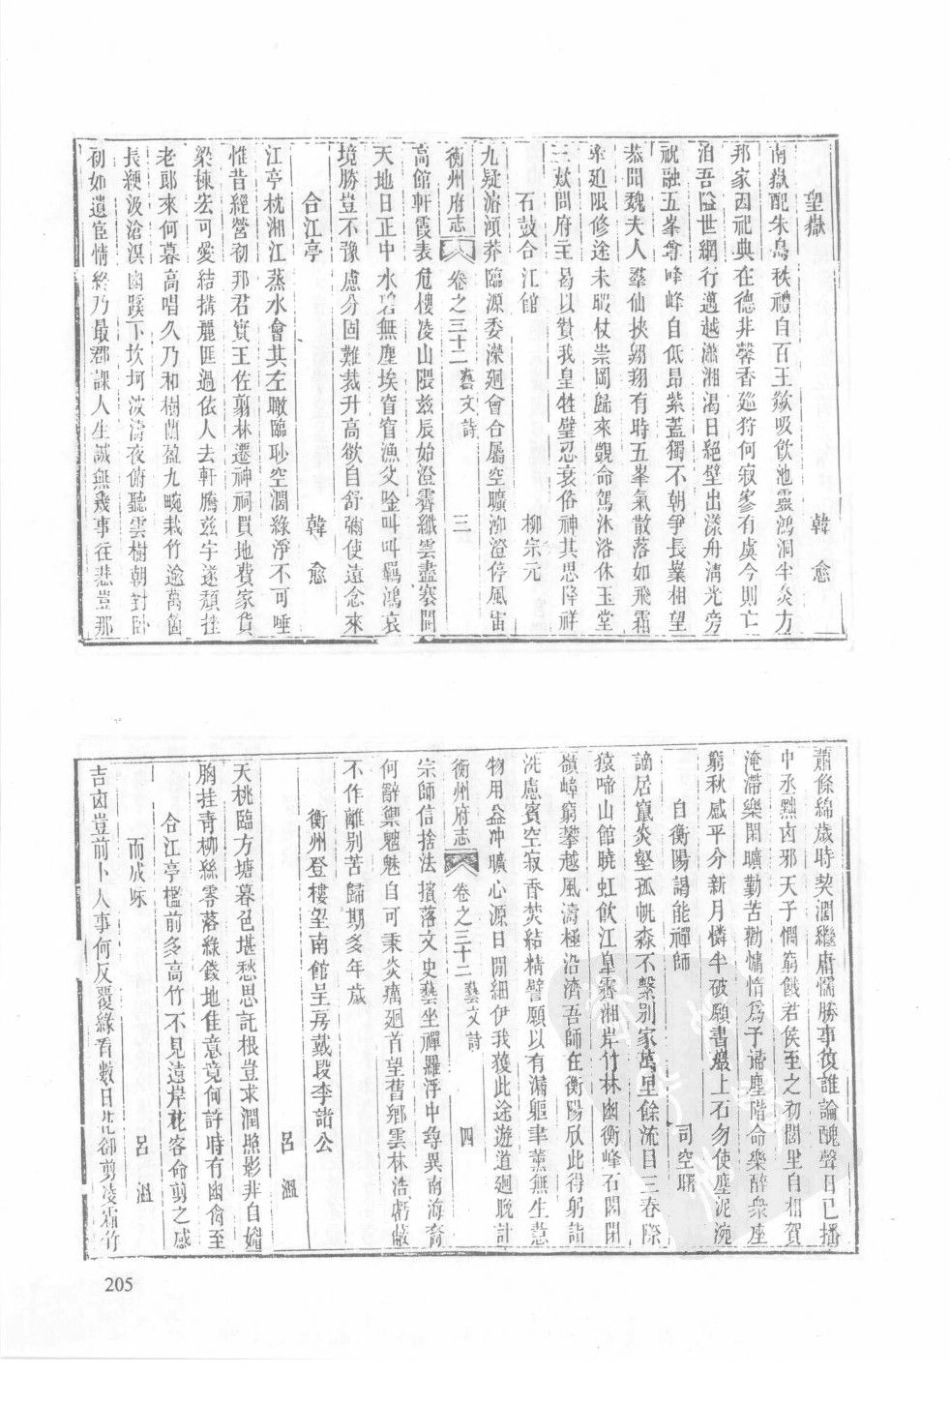 望嶽 韓愈
南嶽配朱鳥秩禮自百王欻吸飲池靈鴻洞半炎方
邦家因祀典在德非馨香巡狩何寂寥有虞今則亡
洎吾隘世網行邁越瀟湘渴日絕壁出漾舟淸光旁
祝融五峯尊峰峰自低昂紫蓋獨不朝爭長嶪相望
恭聞魏夫人羣仙挾翱翔有時五峯氣散落如飛霜
牽廹限修途未暇杖崇岡歸來覬命駕沐浴休玉堂
三歎問府主曷以贊我皇牲璧忍衰俗神其思降祥
石鼓合江館 柳宗元
九疑濬傾莽臨源委濚廻會合屬空曠泓澄停風雷
衡州府志 卷之三十二 藝文詩 三
高館軒霞表危樓凌山隈茲辰始澄霽纖雲盡褰開
天地日正中水碧無塵埃窅窅漁父唫叫叫羈鴻哀
境勝豈不豫慮分固難裁升高欲自舒彌使遠念來
合江亭 韓愈
江亭枕湘江蒸水會其左瞰臨眇空濶綠淨不可唾
惟昔經營初邦君實王佐翦林遷神祠買地費家貨
梁棟宏可愛結搆麗匪過依人去軒騰茲宇遂頹挫
老郎來何暮高唱久乃和樹蘭盈九畹栽竹逾萬箇
長綆汲滄溟幽蹊下坎坷波濤夜俯聽雲樹朝對臥
初如遺宦情終乃最郡課人生誠無幾事往悲豈那
蕭條綿歲時契濶繼庸懦勝事復誰論醜聲日已播
中丞黜凶邪天子憫窮餓君侯至之初閭里自相賀
淹滯樂閑曠勤苦勸慵惰爲予掃塵階命樂醉衆座
窮秋感平分新月憐半破願書巖上石勿使塵泥涴
自衡陽謁能禪師 司空曙
謫居竄炎壑孤帆淼不繫別家萬里餘流目三春際
猿啼山館曉虹飮江臯霽湘岸竹林幽衡峰石閟閉
嶺嶂窮攀越風濤極沿濟吾師在衡陽欣此得躬詣
洗慮賓空寂香焚結精誓願以有漏軀聿薰無生慧
物用益冲曠心源日閒細伊我獲此途遊道廻晚計
衡州府志 卷之三十二 藝文詩 四
宗師信捨法擯落文史藝坐禪羅浮中尋異南海裔
何辭禦魑魅自可乘炎癘廻首望舊鄕雲林浩虧蔽
不作離別苦歸期多年歲
衡州登樓望南館呈房戴段李諸公 呂溫
夭桃臨方塘暮色堪愁思託根豈求潤照影非自媚
胸挂靑柳絲零落綠錢地佳意竟何許時有幽禽至
合江亭檻前多高竹不見遠岸花客命剪之感
而成咏 呂溫
吉凶豈前卜人事何反覆緣看數日花卻剪凌霜竹
205